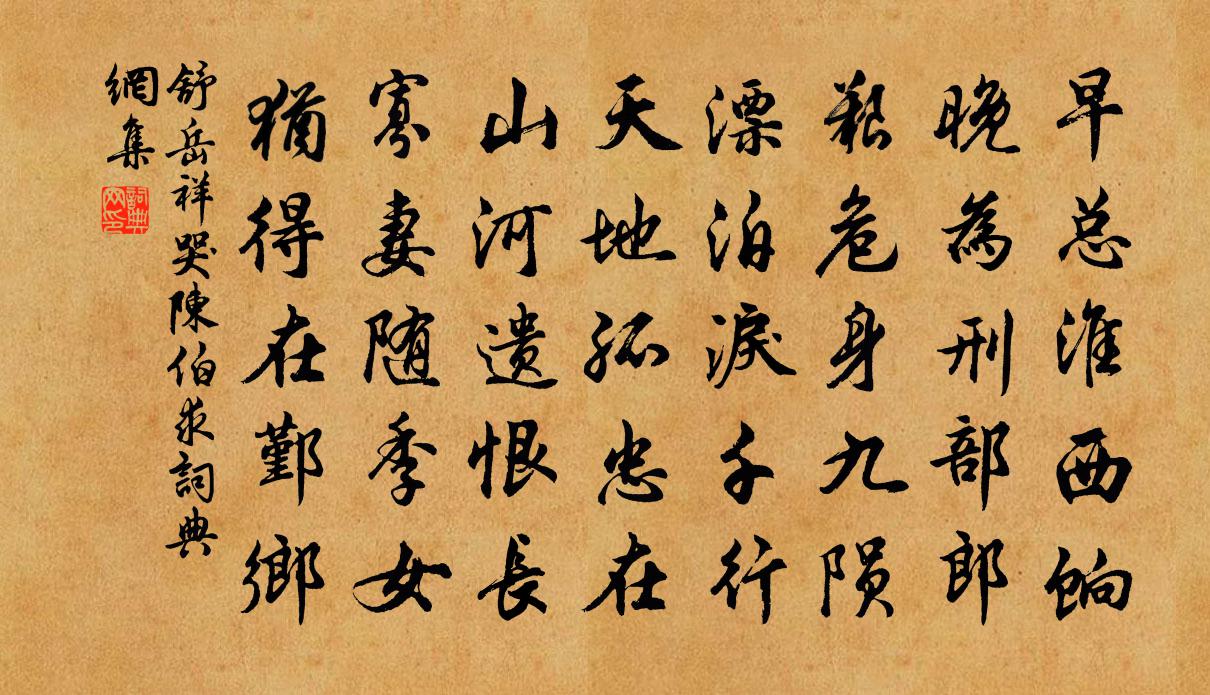 早总淮西饷
晚为刑部郎
艰危身九陨
漂泊淚千行
天地孤忠在
山河遗恨長
寡妻随季女
猶得在鄞鄉
舒岳祥哭陳伯求詞典
網集
詞典
网印